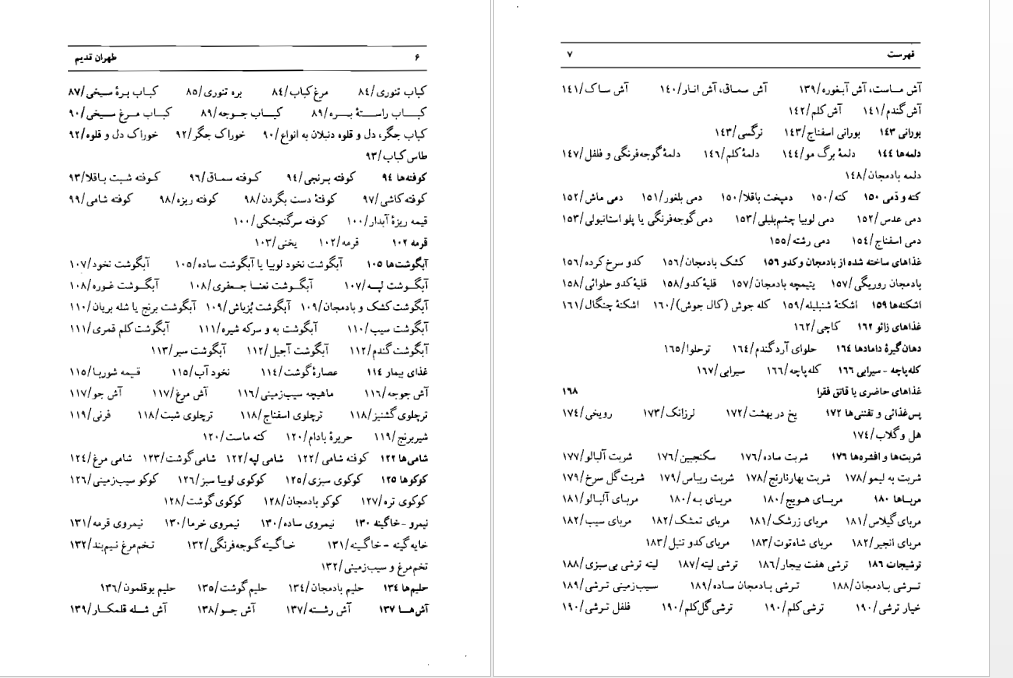 ۶ طهران قدیم
کباب تنوری/۸۴ مرغ کباب/۸۴ بره تنوری/۸۵ کباب برهٔ سیخی/۸۷
کباب راستهٔ بره/۸۹ کباب جوجه/۸۹ کباب مرغ سیخی/۹۰
کباب جگر، دل و قلوه دنبلان به انواع/۹۰ خوراک جگر/۹۲ خوراک دل و قلوه/۹۲
طاس کباب/۹۳
کوفته‌ها ۹۴ کوفته برنجی/۹۴ کوفته سماق/۹۶ کوفته شبت باقلا/۹۳
کوفته کاشی/۹۷ کوفتهٔ دست بگردن/۹۸ کوفته ریزه/۹۸ کوفته شامی/۹۹
قیمه ریزهٔ آبدار/۱۰۰ کوفته سرگنجشکی/۱۰۰
قرمه ۱۰۲ قرمه/۱۰۲ یخنی/۱۰۳
آبگوشت‌ها ۱۰۵ آبگوشت نخود لوبیا یا آبگوشت ساده/۱۰۵ آبگوشت نخود/۱۰۷
آبگوشت لپه/۱۰۷ آبگوشت نعنا جعفری/۱۰۸ آبگوشت غوره/۱۰۸
آبگوشت کشک و بادمجان/۱۰۹ آبگوشت بُزباش/۱۰۹ آبگوشت برنج یا شله بریان/۱۱۰
آبگوشت سیب/۱۱۰ آبگوشت به و سرکه شیره/۱۱۱ آبگوشت کلم قمری/۱۱۱
آبگوشت گندم/۱۱۲ آبگوشت آجیل/۱۱۲ آبگوشت سیر/۱۱۳
غذای بیمار ۱۱۴ عصارهٔ گوشت/۱۱۴ نخود آب/۱۱۵ قیمه شوربا/۱۱۵
آش جوجه/۱۱۶ ماهیچه سیب‌زمینی/۱۱۶ آش مرغ/۱۱۷ آش جو/۱۱۷
ترچلوی گشنیز/۱۱۸ ترچلوی اسفناج/۱۱۸ ترچلوی شبت/۱۱۸ فرنی/۱۱۹
شیربرنج/۱۱۹ حریرهٔ بادام/۱۲۰ کته ماست/۱۲۰
شامی‌ها ۱۲۲ کوفته شامی/۱۲۲ شامی لپه/۱۲۲ شامی گوشت/۱۲۳ شامی مرغ/۱۲۴
کوکوها ۱۲۵ کوکوی سبزی/۱۲۵ کوکوی لوبیا سبز/۱۲۶ کوکو سیب‌زمینی/۱۲۶
کوکوی تره/۱۲۷ کوکو بادمجان/۱۲۸ کوکوی گوشت/۱۲۸
نیمرو - خاگینه ۱۳۰ نیمروی ساده/۱۳۰ نیمروی خرما/۱۳۰ نیمروی قرمه/۱۳۱
خایه گینه - خاگینه/۱۳۱ خاگینه گوجه‌فرنگی/۱۳۲ تخم‌مرغ نیم‌بند/۱۳۲
تخم‌مرغ و سیب‌زمینی/۱۳۲
حلیم‌ها ۱۳۴ حلیم بادمجان/۱۳۴ حلیم گوشت/۱۳۵ حلیم بوقلمون/۱۳۶
آش‌ها ۱۳۷ آش رشته/۱۳۷ آش جو/۱۳۸ آش شله قلمکار/۱۳۹
فهرست ۷
آش ماست، آش آبغوره/۱۳۹ آش سماق، آش انار/۱۴۰ آش ساک/۱۴۱
آش گندم/۱۴۱ آش کلم/۱۴۲
بورانی ۱۴۳ بورانی اسفناج/۱۴۳ نرگسی/۱۴۳
دلمه‌ها ۱۴۴ دلمهٔ برگ مو/۱۴۴ دلمهٔ کلم/۱۴۶ دلمهٔ گوجه‌فرنگی و فلفل/۱۴۷
دلمه بادمجان/۱۴۸
کته و دَمی ۱۵۰ کته/۱۵۰ دمپخت باقلا/۱۵۰ دمی بلغور/۱۵۱ دمی ماش/۱۵۲
دمی عدس/۱۵۲ دمی لوبیا چشم‌بلبلی/۱۵۳ دمی گوجه‌فرنگی یا پلو استانبولی/۱۵۳
دمی اسفناج/۱۵۴ دمی رشته/۱۵۵
غذاهای ساخته شده از بادمجان و کدو ۱۵۶ کشک بادمجان/۱۵۶ کدو سرخ کرده/۱۵۶
بادمجان روریگی/۱۵۷ یتیمچه بادمجان/۱۵۷ قلیهٔ کدو/۱۵۸ قلیهٔ کدو حلوائی/۱۵۸
اشکنه‌ها ۱۵۹ اشکنهٔ شنبلیله/۱۵۹ کله جوش (کال جوش)/۱۶۰ اشکنهٔ چنگال/۱۶۱
غذاهای زائو ۱۶۲ کاچی/۱۶۲
دهان‌گیرهٔ دامادها ۱۶۴ حلوای آرد گندم/۱۶۴ ترحلوا/۱۶۵
کله‌پاچه - سیرابی ۱۶۶ کله‌پاچه/۱۶۶ سیرابی/۱۶۷
غذاهای حاضری یا قاتق فقرا ۱۶۸
پس‌غذائی و تفننی‌ها ۱۷۲ یخ در بهشت/۱۷۲ لرزانک/۱۷۳ رویخی/۱۷۴
هل و گلاب/۱۷۴
شربت‌ها و افشره‌ها ۱۷۶ شربت ساده/۱۷۶ سکنجبین/۱۷۶ شربت آلبالو/۱۷۷
شربت به لیمو/۱۷۸ شربت بهارنارنج/۱۷۸ شربت ریباس/۱۷۹ شربت گل سرخ/۱۷۹
مرباها ۱۸۰ مربای هویج/۱۸۰ مربای به/۱۸۰ مربای آلبالو/۱۸۱
مربای گیلاس/۱۸۱ مربای زرشک/۱۸۱ مربای تمشک/۱۸۲ مربای سیب/۱۸۲
مربای انجیر/۱۸۲ مربای شاه‌توت/۱۸۳ مربای کدو تنبل/۱۸۳
ترشیجات ۱۸۶ ترشی هفت بیجار/۱۸۶ ترشی لیته/۱۸۷ لیته ترشی بی‌سبزی/۱۸۸
ترشی بادمجان/۱۸۸ ترشی بادمجان ساده/۱۸۹ سیب‌زمینی ترشی/۱۸۹
خیار ترشی/۱۹۰ ترشی کلم/۱۹۰ ترشی گل کلم/۱۹۰ فلفل ترشی/۱۹۰